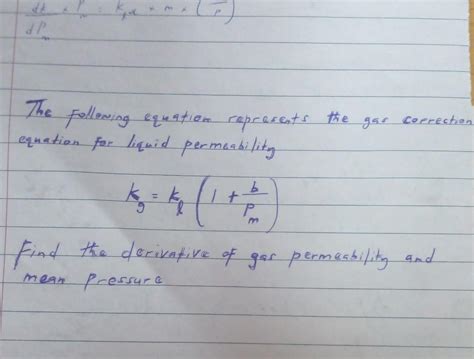 dk × P_m = k × m × (
dP_m
The following equation represents the gas correction
equation for liquid permeability
k_g = k_l (1 + b/P_m)
Find the derivative of gas permeability and
mean pressure